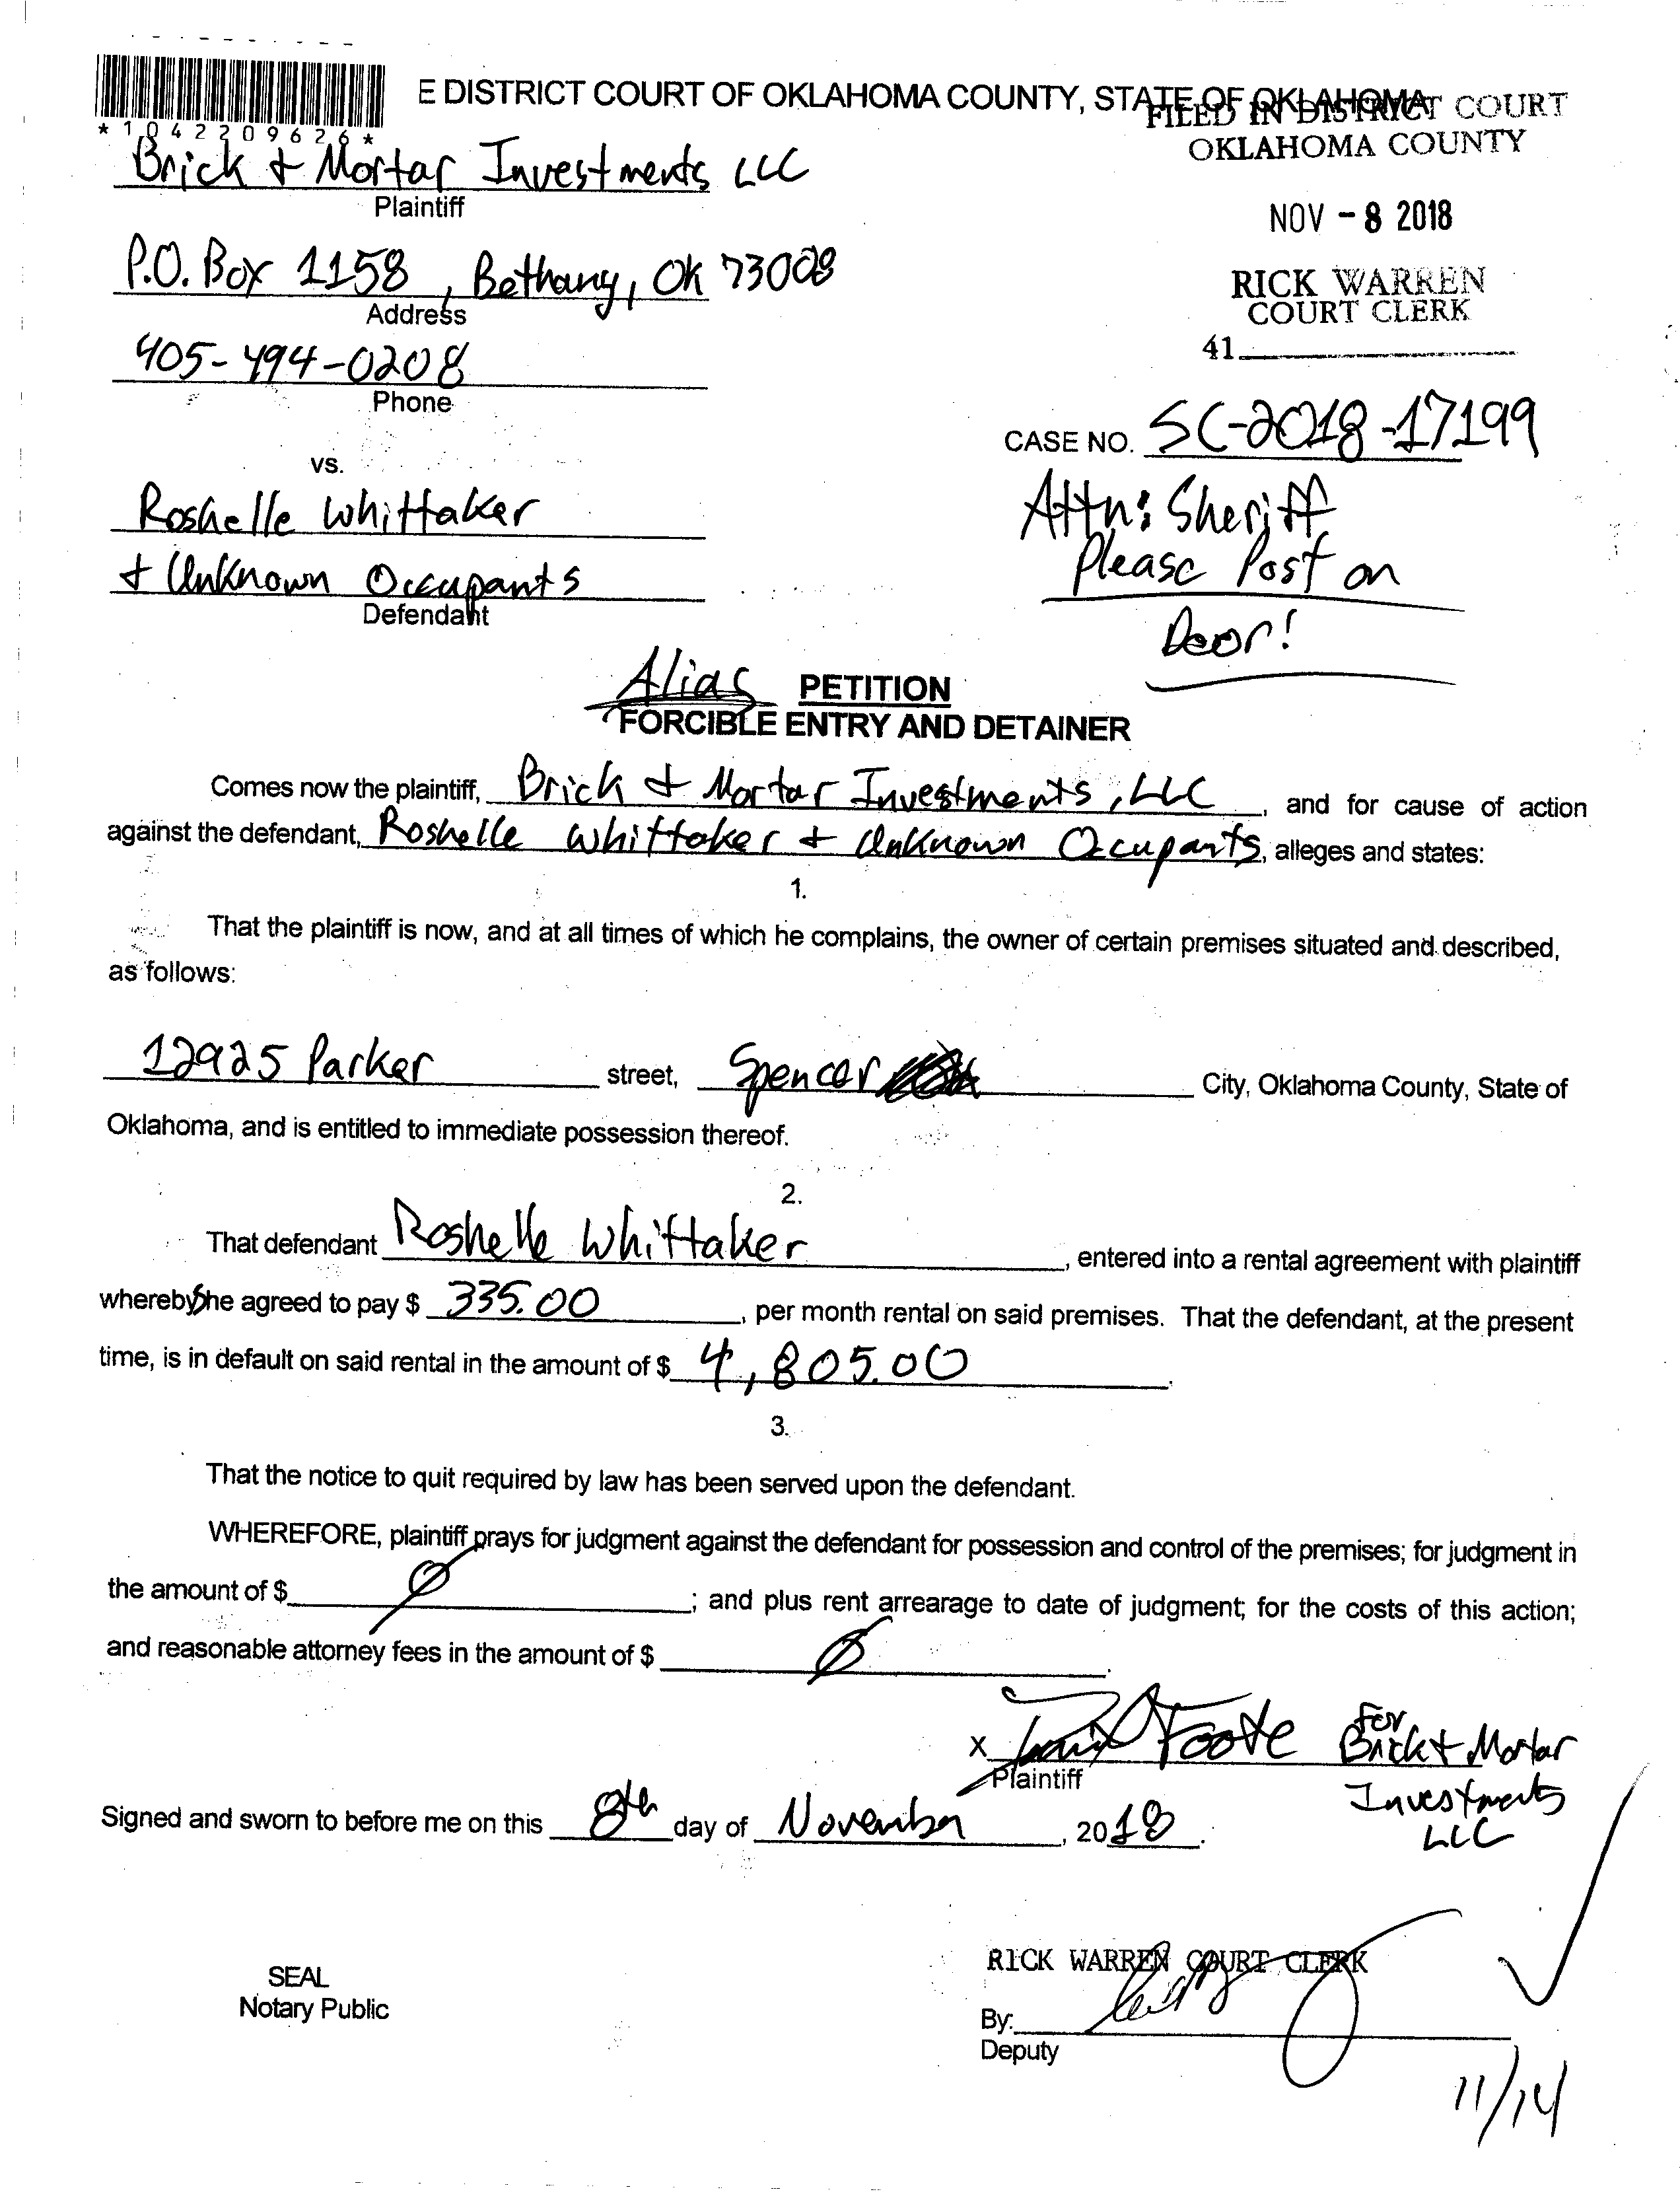 E DISTRICT COURT OF OKLAHOMA COUNTY, STATE OF OKLAHOMA
FILED IN DISTRICT COURT
OKLAHOMA COUNTY
*1042209626*
Brick + Mortar Investments LLC
Plaintiff
NOV - 8 2018
P.O. Box 1158, Bethany, OK 73008
Address
RICK WARREN
COURT CLERK
41
405-494-0208
Phone
CASE NO. SC-2018-17199
vs.
Attn: Sheriff
Please Post on
Door!
Roshelle Whittaker
+ Unknown Occupants
Defendant
Alias PETITION
FORCIBLE ENTRY AND DETAINER
Comes now the plaintiff, Brick + Mortar Investments, LLC, and for cause of action
against the defendant, Roshelle Whittaker + Unknown Occupants, alleges and states:
1.
That the plaintiff is now, and at all times of which he complains, the owner of certain premises situated and described,
as follows:
12925 Parker street, Spencer City, Oklahoma County, State of
Oklahoma, and is entitled to immediate possession thereof.
2.
That defendant Roshelle Whittaker, entered into a rental agreement with plaintiff
whereby She agreed to pay $ 335.00, per month rental on said premises. That the defendant, at the present
time, is in default on said rental in the amount of $ 4,805.00.
3.
That the notice to quit required by law has been served upon the defendant.
WHEREFORE, plaintiff prays for judgment against the defendant for possession and control of the premises; for judgment in
the amount of $ Ø; and plus rent arrearage to date of judgment; for the costs of this action;
and reasonable attorney fees in the amount of $ Ø.
X Foote For Brick + Mortar
Investments
LLC
Plaintiff
Signed and sworn to before me on this 8th day of November, 2018.
RICK WARREN COURT CLERK
SEAL
Notary Public
By:
Deputy
11/14